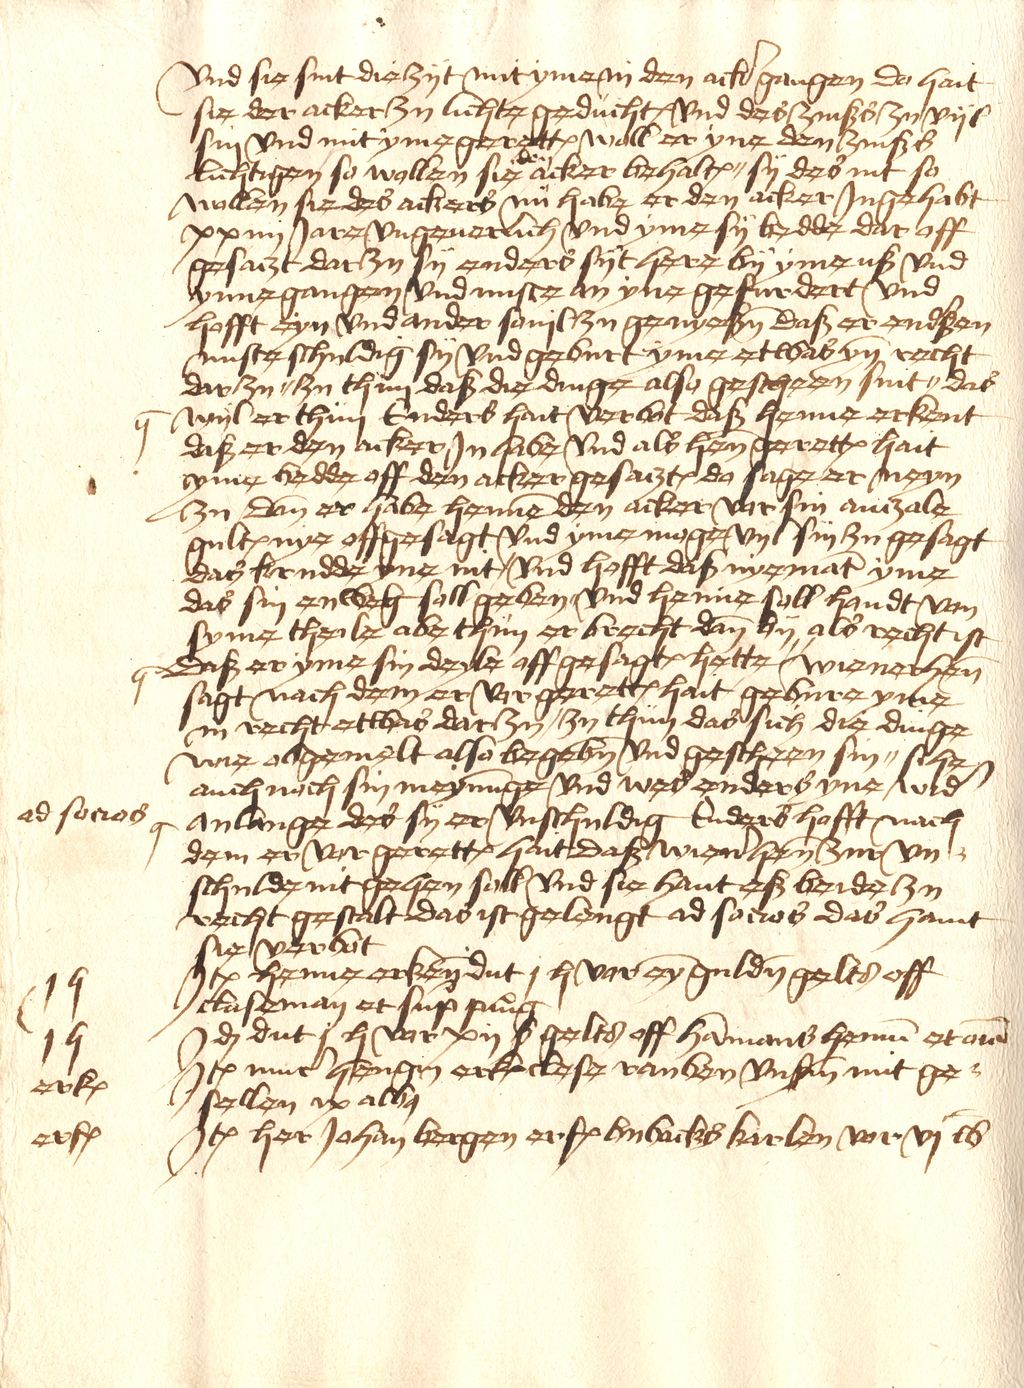 Und sie sint die zijt mit yme in den ack(er) gangen do hait
sie der acker zu lichte geducht Und des zinß zu vijl
sin Und mit yme gerett woll er yne den zinß
lichtigen so wollen sie den acker behalt(en) sij des nit so
wollen sie des ackers nit habe er den acker Ingehabt
xxiiij Jare Ungeuerlich Und yme sij bedde dar off
gesaczt darzu sij enders sijt here bij yme uß Und
ynne gangen Und muste an yne gefurdert Und
hofft eyn Und ander sovijl zu genyeß(e)n daß er endßen
muste schuldig sij Und geburt yme etwas yn recht
darzu zu thun daß die dinge also gescheen sint das
wijl er thun Enders hait verbot daß henne erkent
daß er den acker In habe Und als hen gerett hait
yme bedde off den acker gesaczt do sage er neyn
zu dan er habe henne den acker vor sin anczale
gult nye offgesagt Und yme moge vil sin zu gesagt
das krudde yne nit Und hofft daß nyemant yme
das sin enweg soll geben Und henne soll handt von
syme theile abe thun er brecht dan bij als recht ist
daß er yme sin deyle offgesagt hette Wienerhen
sagt nach dem er vor gerett hait gebure yme
in recht etwas darzu zu thun das sich die dinge
wie obgemelt also begeb(e)n Und gescheen sin sehe
auch noch sin meynu(n)ge Und wes enders yne wid(er)
ad socios anlange des sij er Unschuldig Enders hofft nach
dem er vor gerett hait daß Wienerhen zur un-
schulde nit gehen soll Und sie hant eß beide zu
recht gestalt das ist gelengt ad socios das hant
sie verbot
1 h It(em) henne erken dut j h vor eyn guld(e)n gelts off
claseman et sup(ra) pung
1 h Id(em) dut j h vor xij ß gelts off ha(m)mans hennen et o(mn)ia
erk(en) It(em) mur hengin erk(en) clese rauben Unß(e)m mit ge-
sellen ix alb(us)
erf(olgt) It(em) her Johan bergen erf(olgt) bnbacks karlen vor vj lb